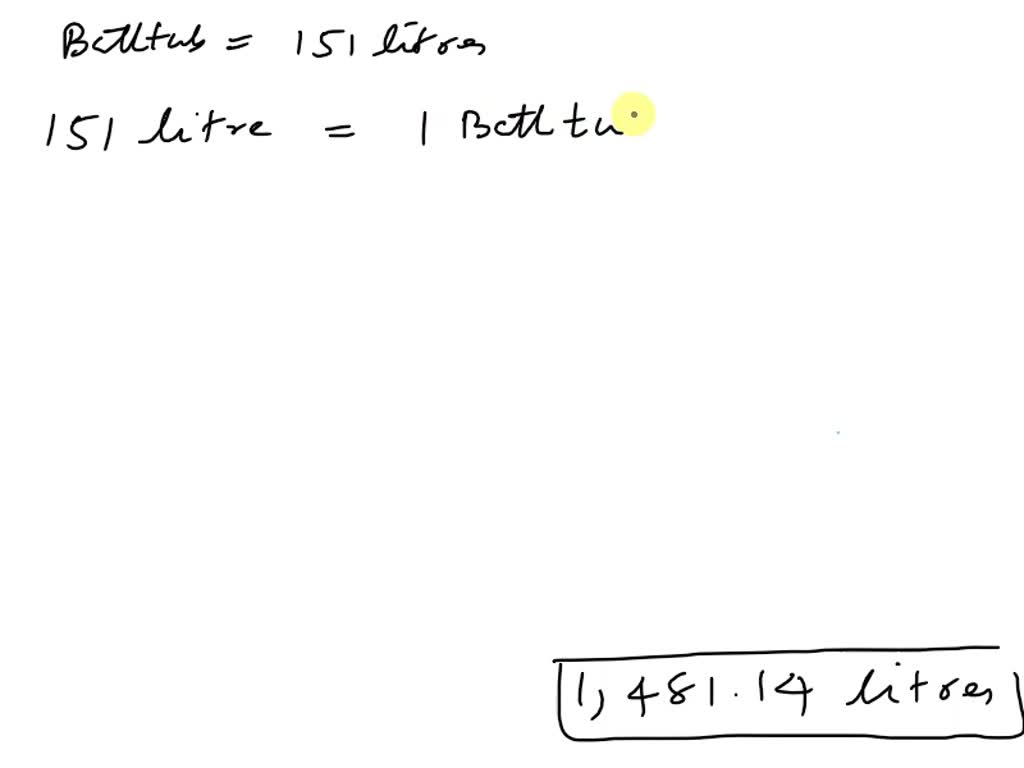 Bathtub = 151 litres
151 litre = 1 Bathtu
1,481.14 litres